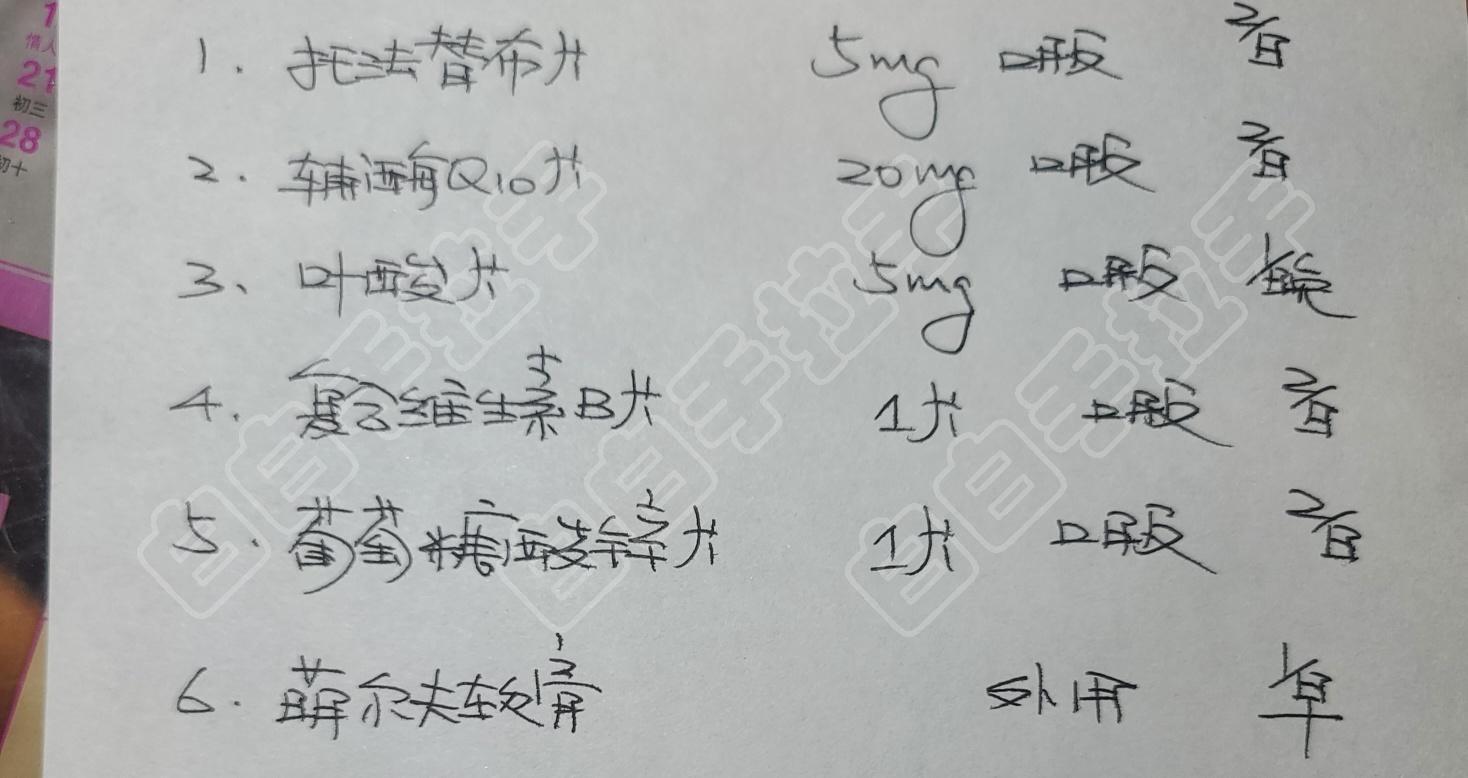 1
情人
21
初三
28
初十
1. 托法替布片 5mg 口服 2/日
2. 辅酶Q10片 20mg 口服 2/日
3、叶酸片 5mg 口服 1/晚
4. 复合维生素B片 1片 口服 2/日
5. 葡萄糖酸锌片 1片 口服 2/日
6. 萌尔夫软膏 外用 1/早